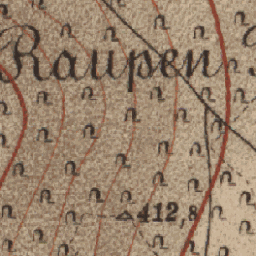 Raupen
412,8